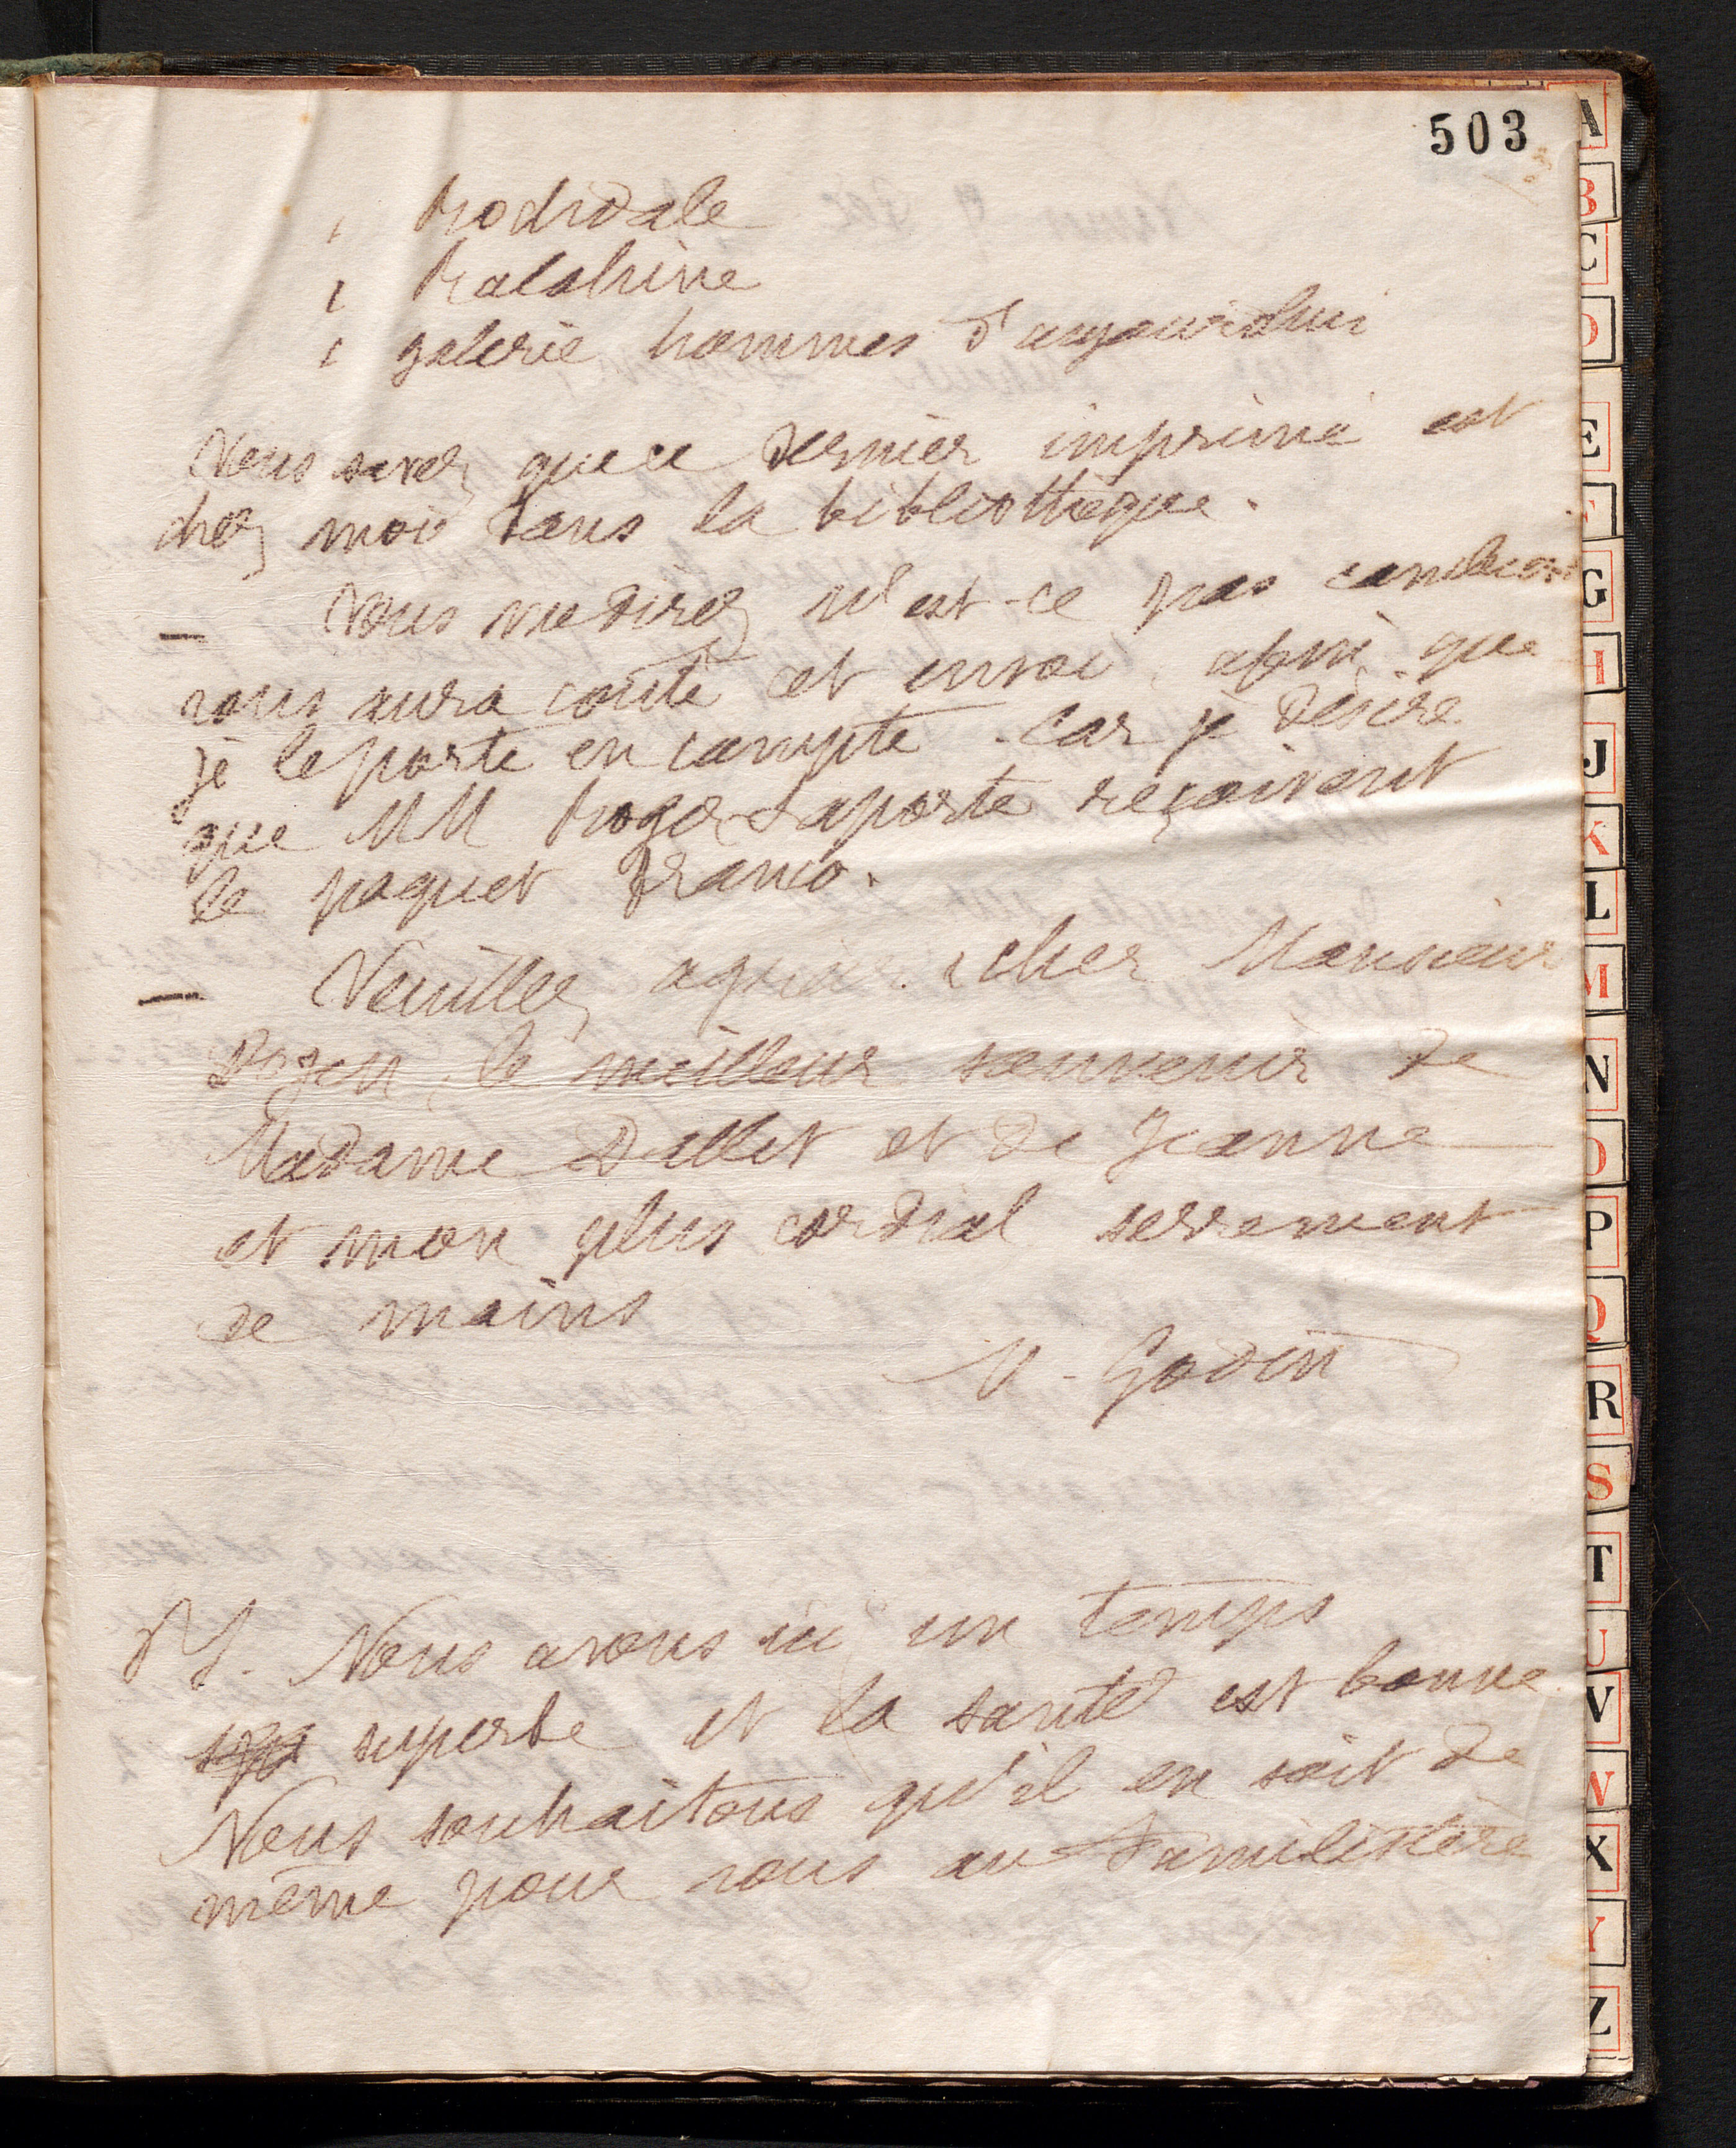 503
1 Rochdale
1 Ralahine
1 galerie hommes d'aujourd'hui
Vous savez que ce dernier imprimé est
chez moi dans la bibliothèque.
— Vous me direz n'est-ce pas combien
vous aura couté cet envoi, afin que
je le porte en compte. Car je désire
que MM Roger Laporte reçoivent
le paquet franco.
— Veuillez agréer, cher Monsieur
le meilleur souvenir de
Madame Dallet et de Jeanne
et mon plus cordial serrement
de mains
M. Godin
PS. Nous avons ici un temps
superbe et la santé est bonne.
Nous souhaitons qu'il en soit de
même pour vous au Familistère
A
B
C
D
E
F
G
H
J
K
L
M
N
O
P
Q
R
S
T
U
V
W
X
Y
Z